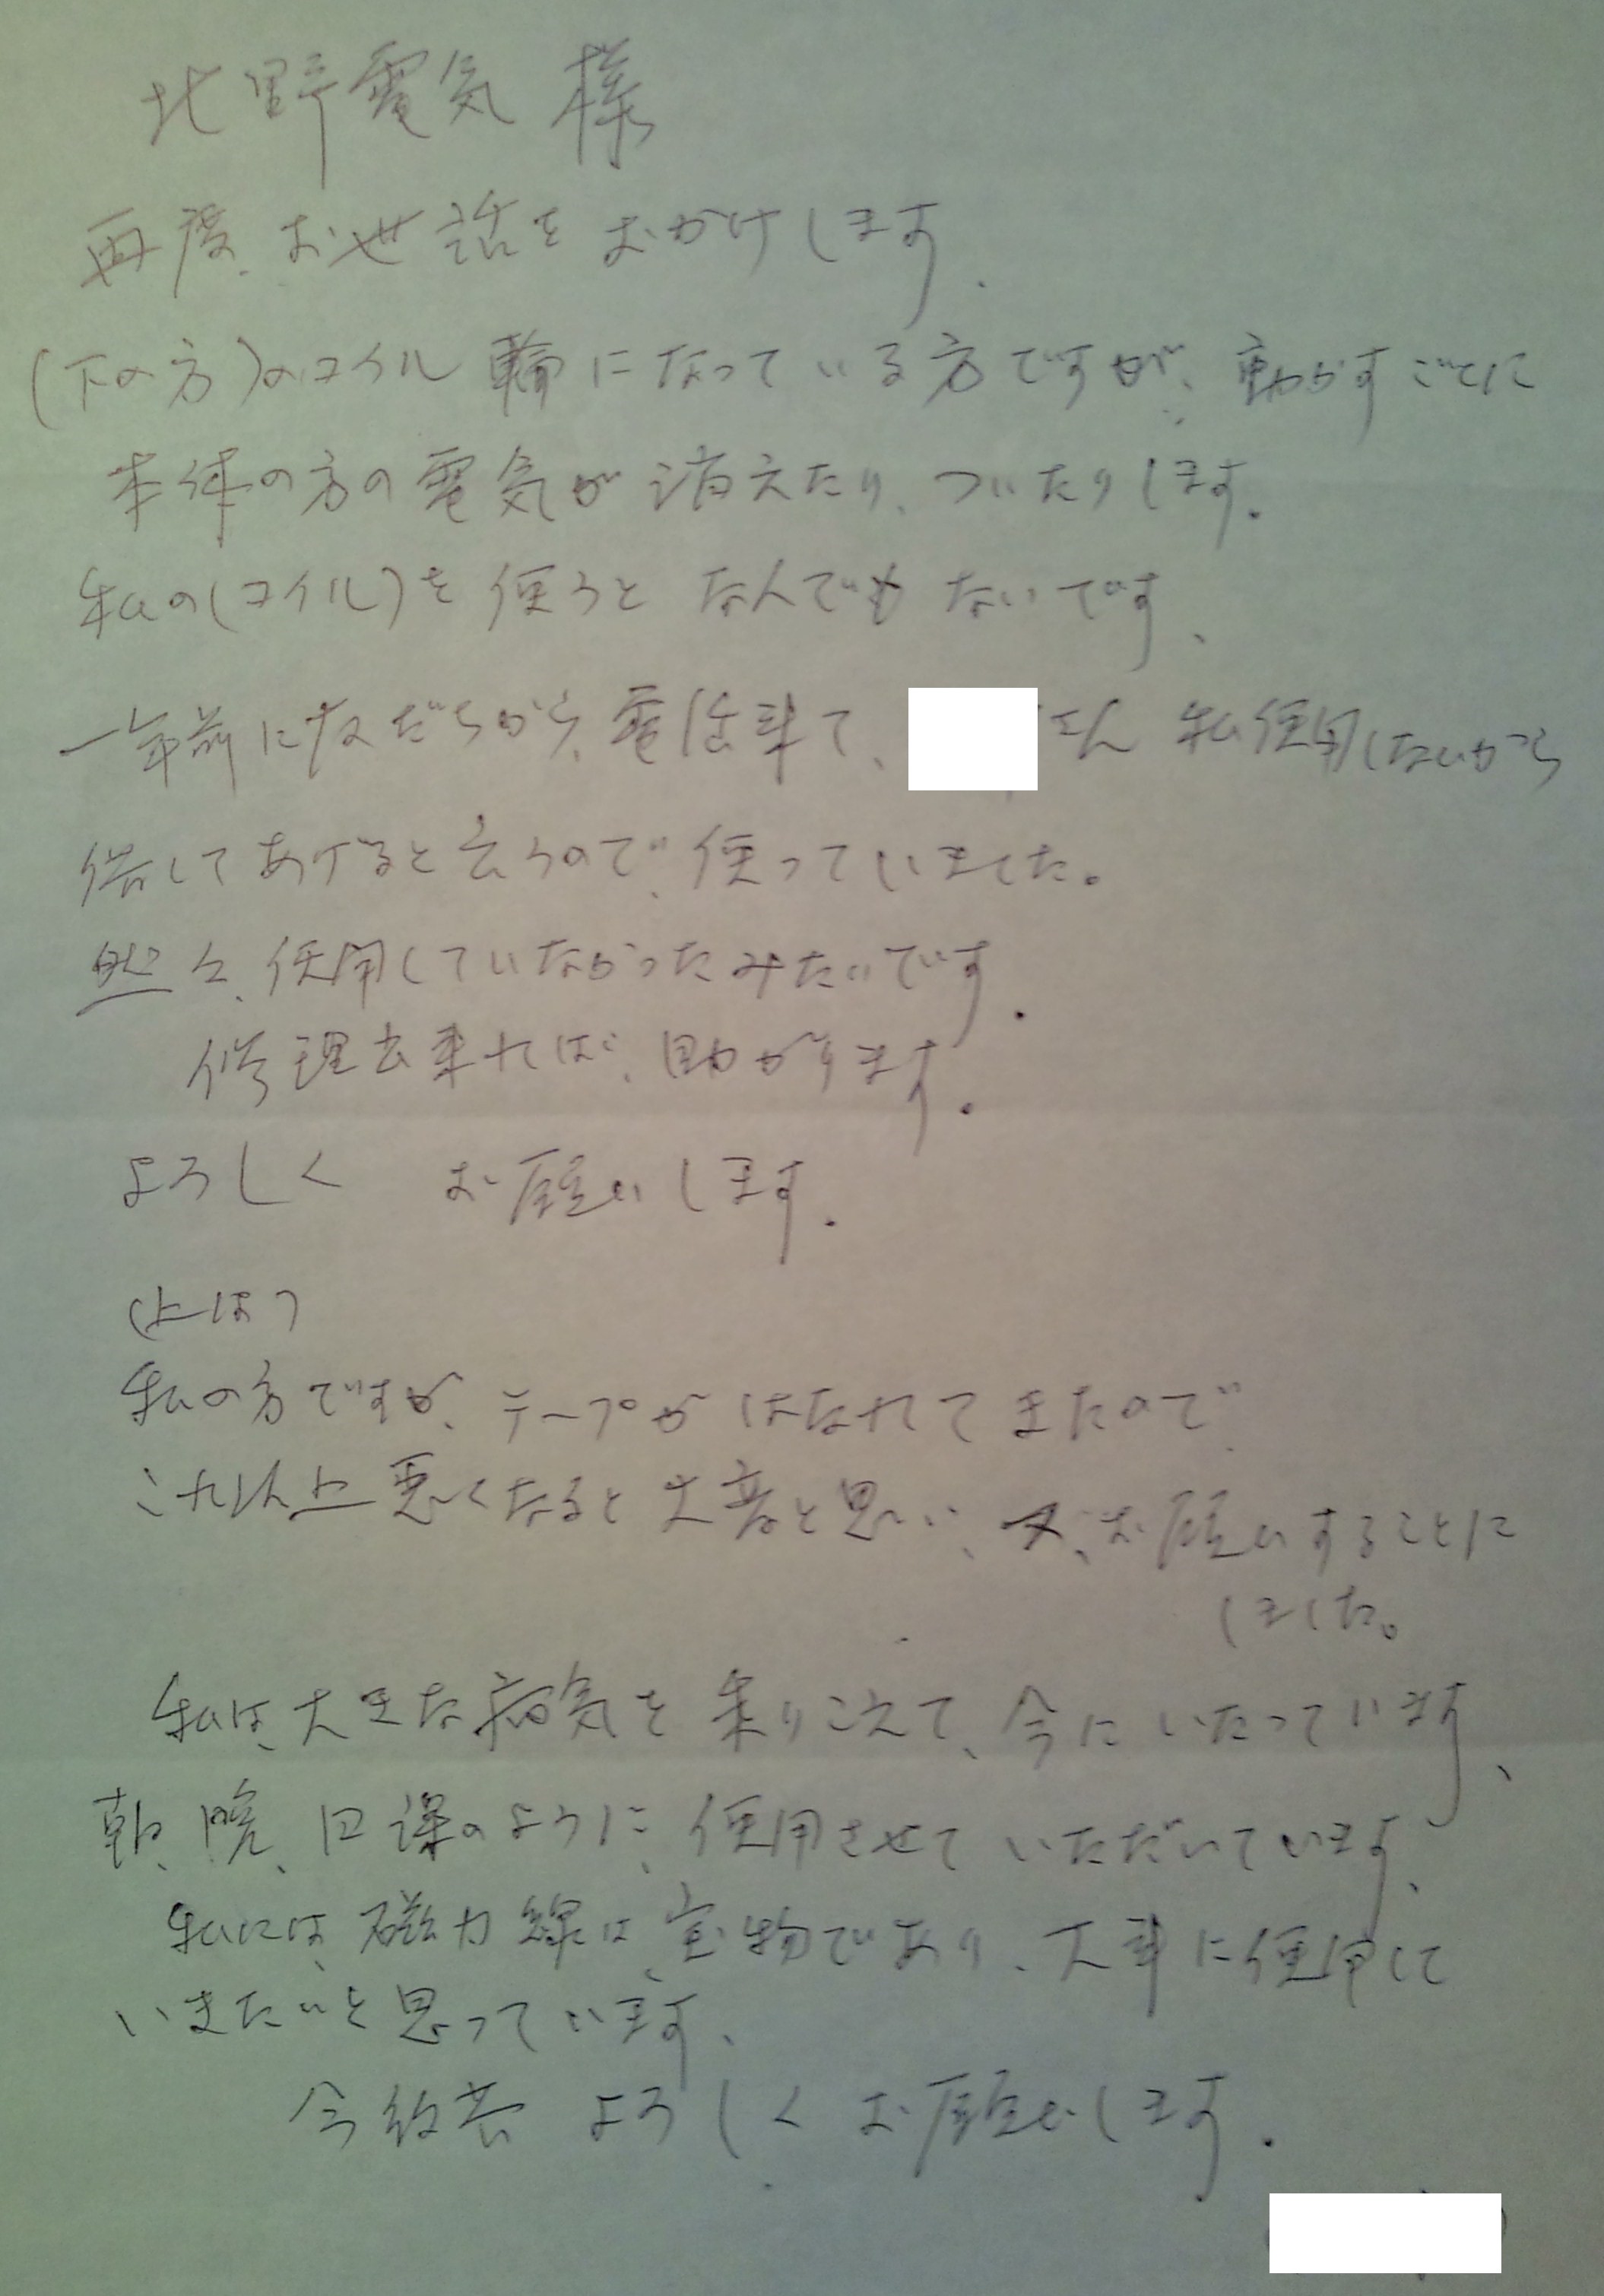 北野電気 様
再度、お世話をおかけします.
(下の方)のコイル 輪になっている方ですが、動かすごとに
本体の方の電気が消えたり、ついたりします.
私の(コイル)を使うと なんでもないです、
一年前に友だちから、電話来て、さん 私使用しないから
供してあげると云うので、使っていました。
然と、使用していなかったみたいです.
修理出来れば、助かります.
よろしく お願いします.
(上はう
私の方ですが、テープがはなれてきたので、
これ以上悪くなると大変と思い、又、お願いすることに
しました。
私は、大きな病気を乗りこえて、今にいたっています、
朝、晩、日課のように、使用させていただいています、
私には、磁力線は、宝物であり、大事に使用して
いきたいと思っています、
今後共 よろしくお願いします.